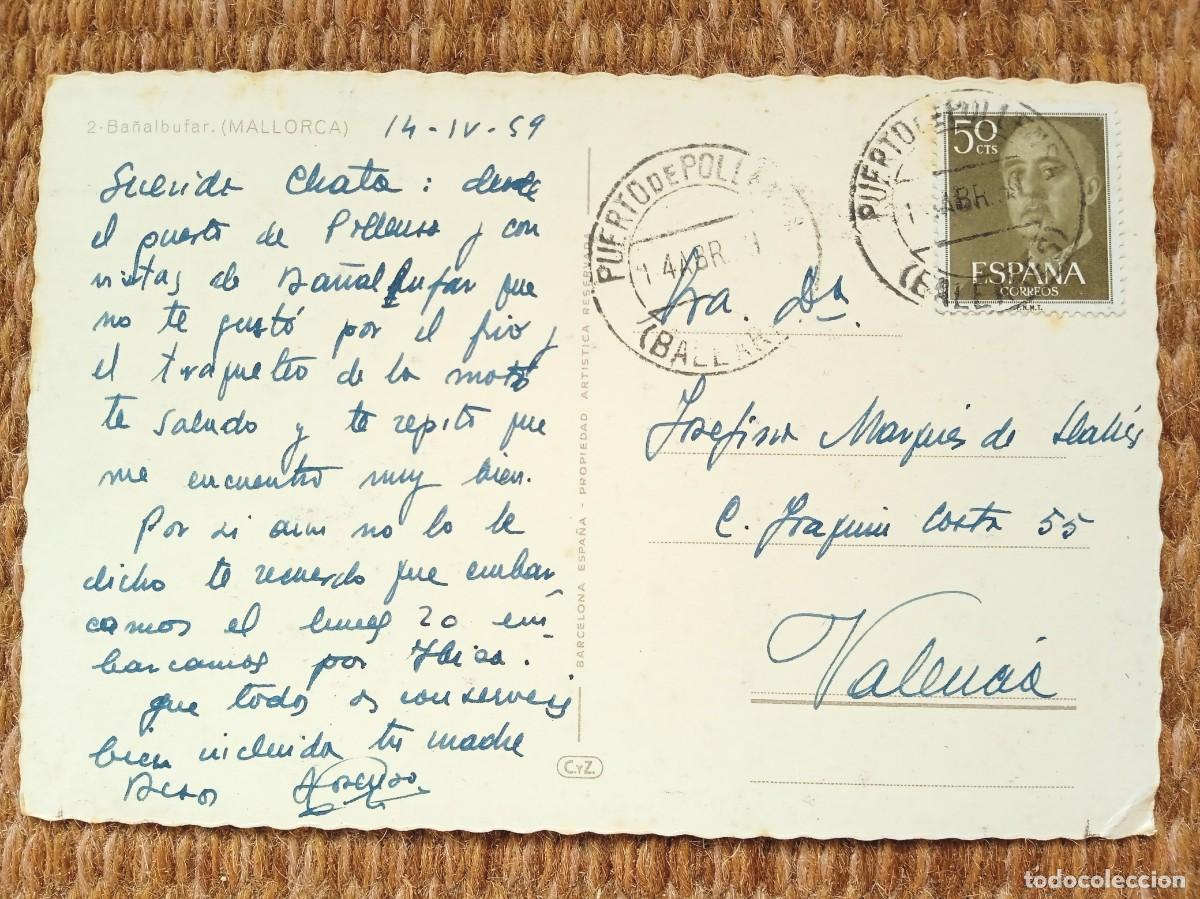 2-Bañalbufar. (MALLORCA)
14-IV-59
Querida Chata: desde
el puerto de Pollensa y con
vistas de Bañalbufar que
no te gustó por el frio y
el traqueteo de la moto
te saludo y te repito que
me encuentro muy bien.
Por si aun no lo he
dicho te recuerdo que embar
camos el lunes 20 em
barcamos por Ibiza.
que todos os conserveis
bien incluida tu madre
Besos
BARCELONA ESPAÑA - PROPIEDAD ARTISTICA RESERVADA
C.YZ.
PUERTO DE POLLENSA
14 ABR.
(BALEARES)
PUERTO DE POLLENSA
14 ABR.
(BALEARES)
50 CTS
ESPAÑA
CORREOS
F.N.M.T.
Sra. Dª
Josefina Marques de
C. Joaquin Costa 55
Valencia
todocoleccion